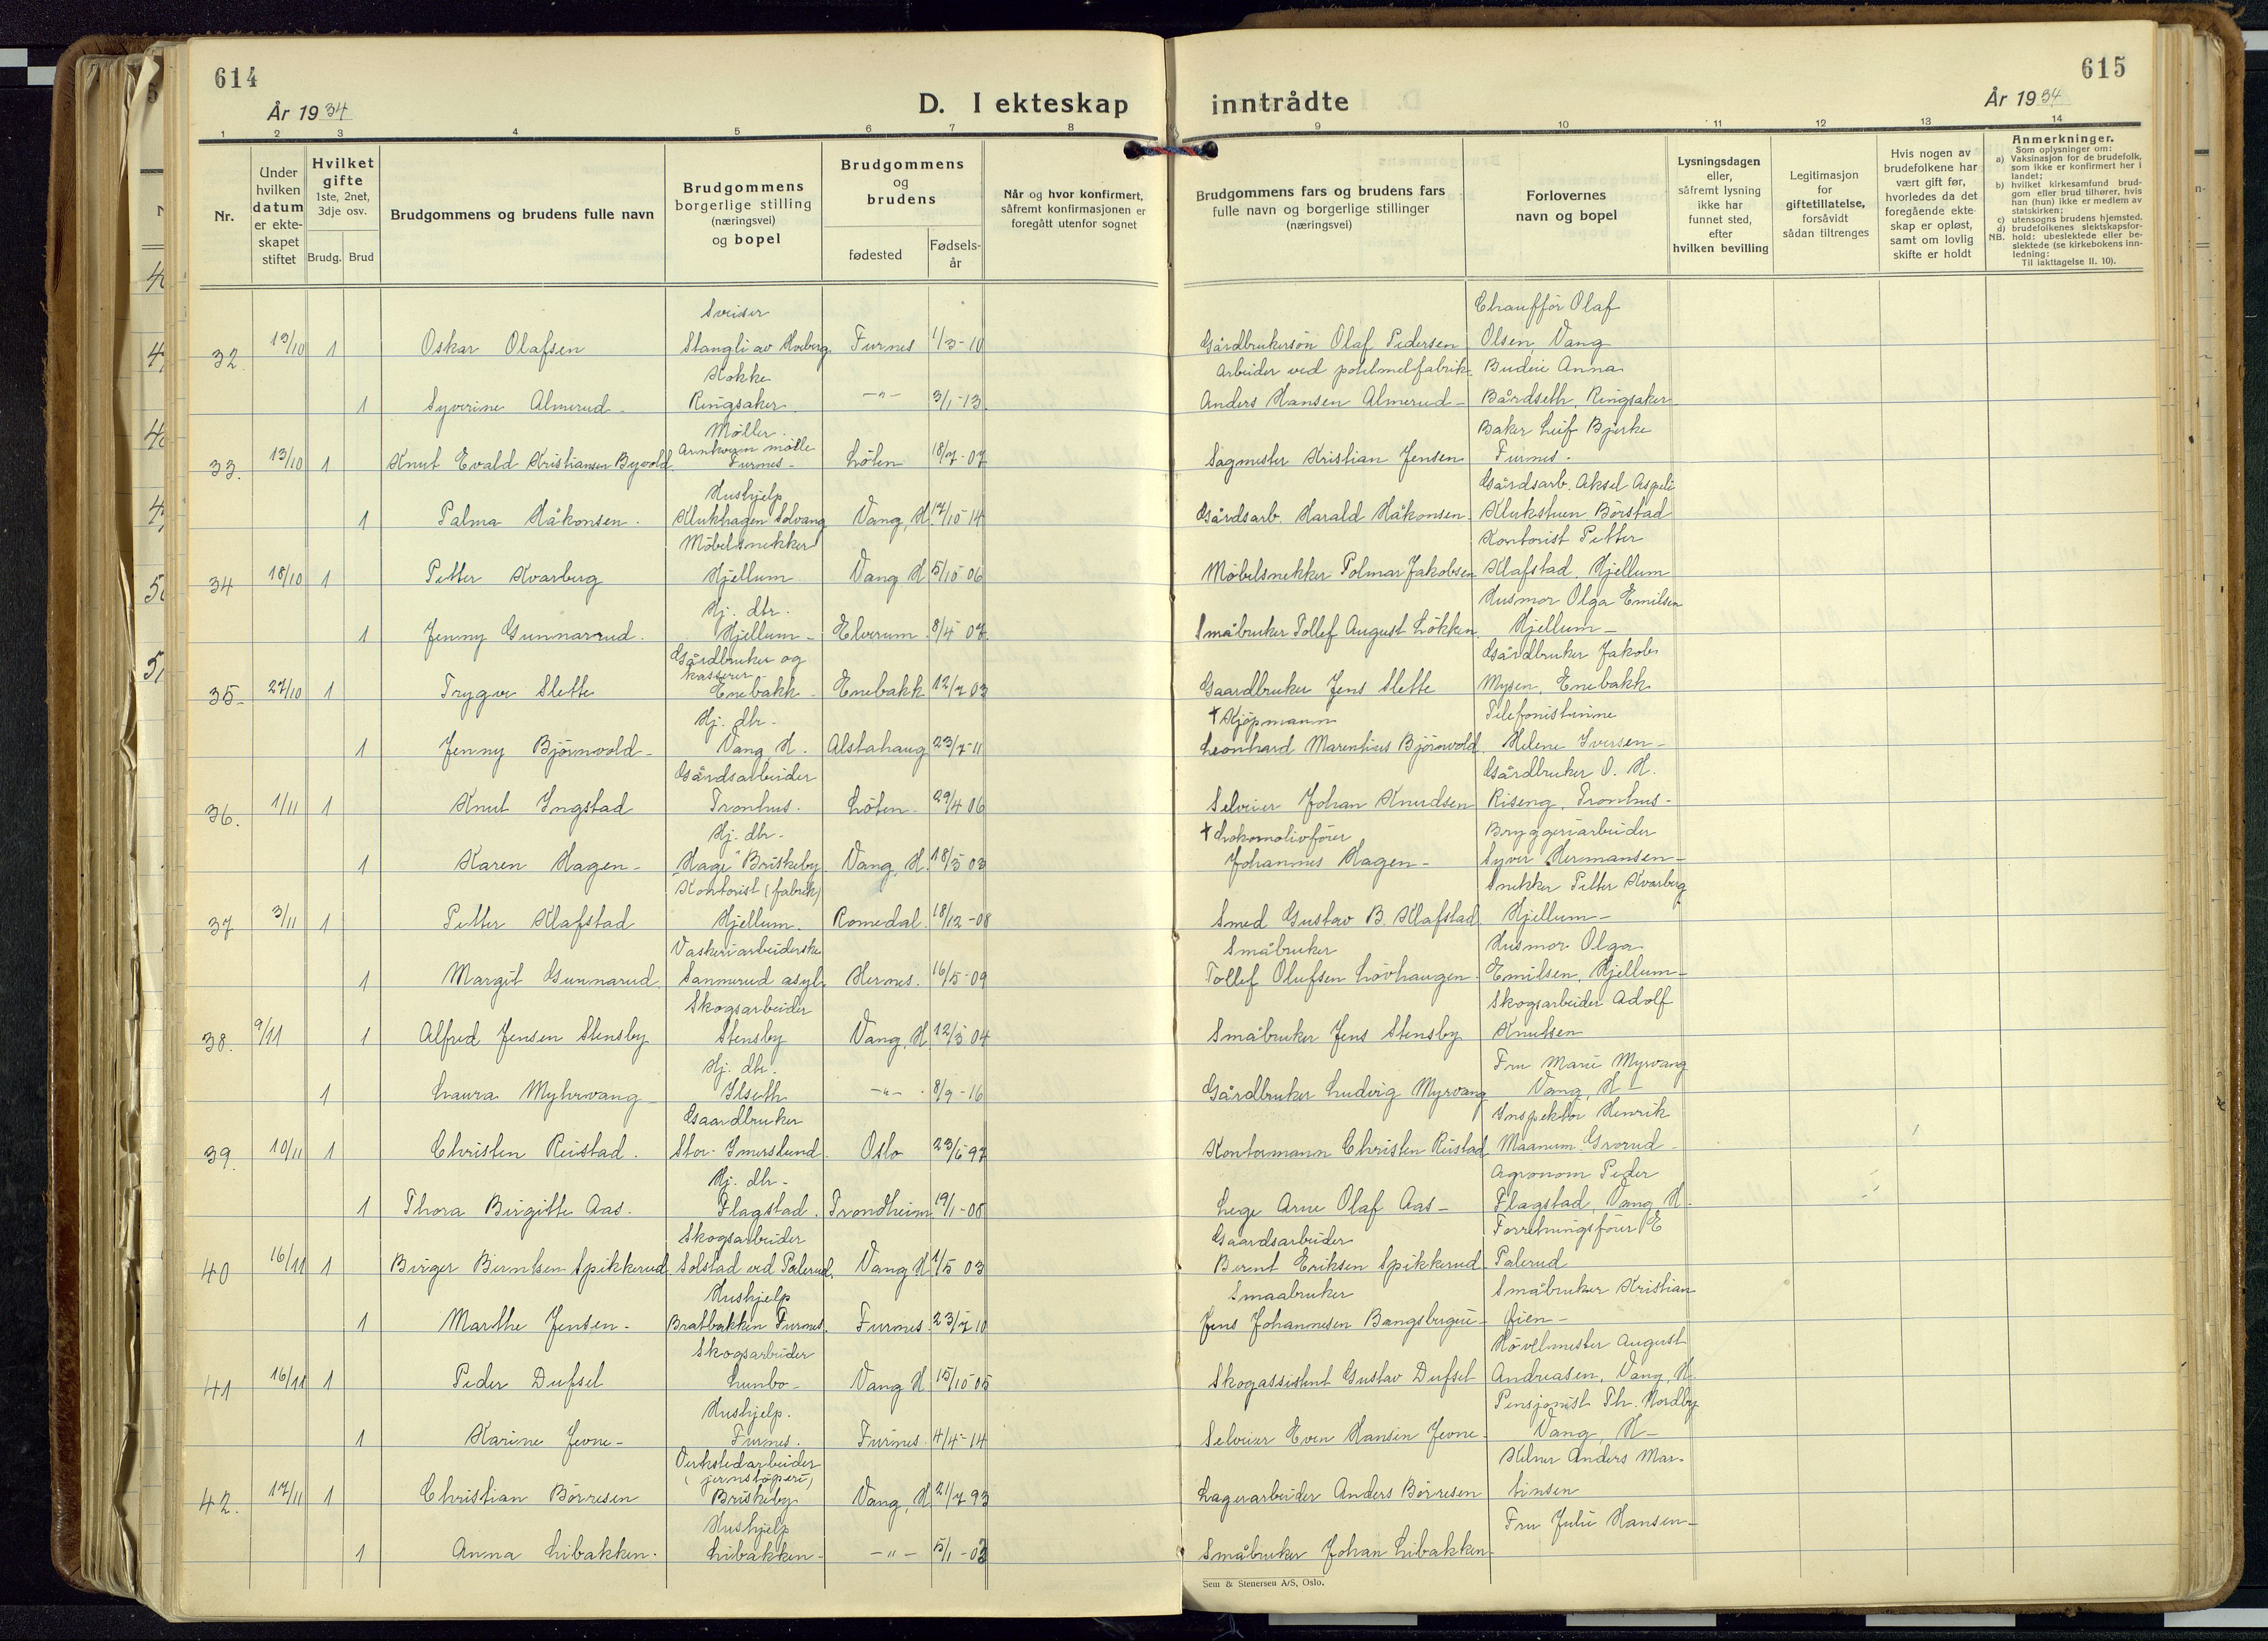 614
År 1934
D. I ekteskap
inntrådte
615
År 1934
1 2 3 4 5 6 7 8 9 10 11 12 13 14
Nr.
Under hvilken datum er ekteskapet stiftet
Hvilket gifte 1ste, 2net, 3dje osv.
Brudg. Brud
Brudgommens og brudens fulle navn
Brudgommens borgerlige stilling (næringsvei) og bopel
Brudgommens og brudens
fødested
Fødselsår
Når og hvor konfirmert, såfremt konfirmasjonen er foregått utenfor sognet
Brudgommens fars og brudens fars fulle navn og borgerlige stillinger (næringsvei)
Forlovernes navn og bopel
Lysningsdagen eller, såfremt lysning ikke har funnet sted, efter hvilken bevilling
Legitimasjon for giftetillatelse, forsåvidt sådan tiltrenges
Hvis nogen av brudefolkene har vært gift før, hvorledes da det foregående ekteskap er opløst, samt om lovlig skifte er holdt
Anmerkninger.
Som oplysninger om:
a) Vaksinasjon for de brudefolk, som ikke er konfirmert her i landet;
b) hvilket kirkesamfund brudgom eller brud tilhører, hvis han (hun) ikke er medlem av statskirken;
c) utensogns brudens hjemsted.
d) brudefolkenes slektskapsforhold: ubeslektede eller beslektede (se kirkebokens innledning:
NB. Til iakttagelse II. 10).
32 13/10 1 Oskar Olafsen Sveiser Stangli av Hveberg Furnes 1/3-10 Gårdbrukersøn Olaf Pedersen Chauffør Olaf Olsen Vang
1 Syverine Almerud Kokke Ringsaker -"- 3/1-13 Arbeider ved potetmelfabrik Anders Hansen Almerud Budeie Anna Bårdseth, Ringsaker
33. 13/10 1 Knut Evald Kristiansen Byvold Møller Arnkvern mølle Furnes Løten 18/7-07 Sagmester Kristian Jensen Baker Leif Bjerke Furnes.
1 Palma Håkonsen. Hushjelp Klukhagen Solvang Vang, H. 17/10-14 Gårdsarb. Harald Håkonsen Gårdsarb. Aksel Aspeli Klukstuen Børstad
34 18/10 1 Petter Kvarberg Møbelsnekker Hjellum Vang H 5/10 06 Møbelsnekker Polmar Jakobsen Kontorist Petter Klafstad, Hjellum
1 Jenny Gunnarrud. Hj. dtr. Hjellum Elverum 8/4 07 Småbruker Tollef August Løkken Husmor Olga Emilsen Hjellum
35 27/10 1 Trygve Slette Gårdbruker og kasserer Enebakk Enebakk 12/7 03 Gaardbruker Jens Slette Gårdbruker Jakob Mysen, Enebakk
1 Jenny Bjørnvold Hj. dtr. Vang H. Alstahaug 23/7-11 † Kjøpmann Leonhard Marentius Bjørnvold Telefonistinne Helene Iversen
36. 1/11 1 Knut Yngstad Gårdsarbeider Tronhus. Løten 29/4 06 Selveier Johan Knudsen Gårdbruker O. H. Riseng, Tronhus
1 Karen Hagen Hj. dtr. "Hage" Briskeby Vang, H. 18/3 03 † Lokomotivfører Johannes Hagen Bryggeriarbeider Syver Hermansen
37 3/11 1 Petter Klafstad Kontorist (fabrik) Hjellum. Romedal 18/12-08 Smed Gustav B. Klafstad Snekker Petter Kvarberg Hjellum
1 Margit Gunnarud Vaskeriarbeiderske Sannerud asyl. Hernes. 16/5-09 Småbruker Tollef Olufsen Løvhaugen Husmor Olga Emilsen, Hjellum
38. 9/11 1 Alfred Jensen Stensby Skogsarbeider Stensby Vang, H 12/3 04 Småbruker Jens Stensby Skogsarbeider Adolf Knutsen
1 Laura Myhrvang Hj. dtr. Ilseth -"- 8/9-16 Gårdbruker Ludvig Myrvang Fru Marie Myrvang Vang, H
39. 10/11 1 Christen Reistad. Gaardbruker Stor-Imerslund. Oslo 23/6 97 Kontormann Christen Reistad Inspektør Henrik Maanum Grorud
1 Thora Birgitte Aas. Hj. dtr. Flagstad. Trondheim 19/1-08 Lege Arne Olaf Aas Agronom Peder Flagstad, Vang, H.
40 16/11 1 Birger Berntsen Spikkerud Skogsarbeider Solstad ved Palerud. Vang H 1/5 03 Gaardsarbeider Bernt Eriksen Spikkerud Forretningsfører E Palerud
1 Marthe Jensen. Hushjelp Bratbakken Furnes. Furnes 23/7 10 Smaabruker Jens Johannesen Bangsbergie Småbruker Kristian Lien
41 16/11 1 Peder Dufset Skogsarbeider Lunbo Vang H 15/10 05 Skogassistent Gustav Dufset Høvelmester August Andreasen, Vang, H.
1 Karine Jevne Hushjelp. Furnes. Furnes. 4/4-14 Selveier Even Hansen Jevne Pensjonist Th. Nordby Vang, H
42. 17/11 1 Christian Børresen Verkstedarbeider (jernstøperi) Briskeby Vang, H 21/7 93 Lagerarbeider Anders Børresen Kelner Anders Martinsen
1 Anna Libakken. Hushjelp Libakken -"- 5/1-03 Småbruker Johan Libakken Fru Julie Hansen
Sem & Stenersen A/S, Oslo.